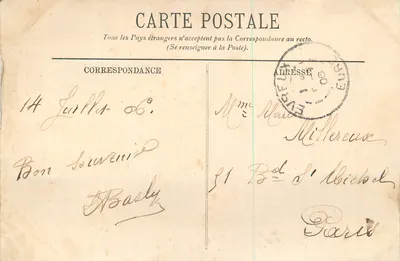 CARTE POSTALE
Tous les Pays étrangers n'acceptent pas la Correspondance au recto.
(Se renseigner à la Poste).
CORRESPONDANCE
ADRESSE
EVREUX
EURE
14 Juillet 06.
Bon souvenir
Mme
51 Bd St Michel
Paris